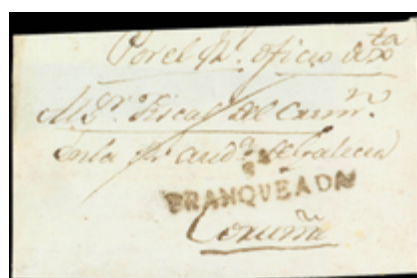 Por el Rl. oficio de
Al Sr. Fiscal del Crimn.
en la Rl. audª. de Galicia
FRANQUEADA
Coruña